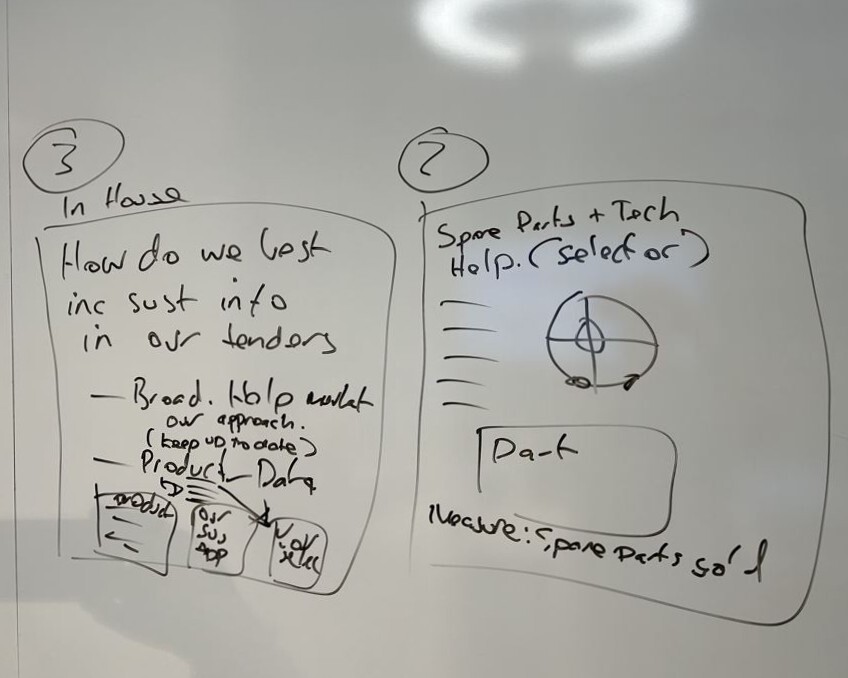 3
In House
How do we best
inc sust info
in our tenders
— Broad. Help market
our approach.
(keep up to date)
— Product Data
product
our
sus
app
2
Spare Parts + Tech
Help. (selector)
Part
Measure: Spare parts sold